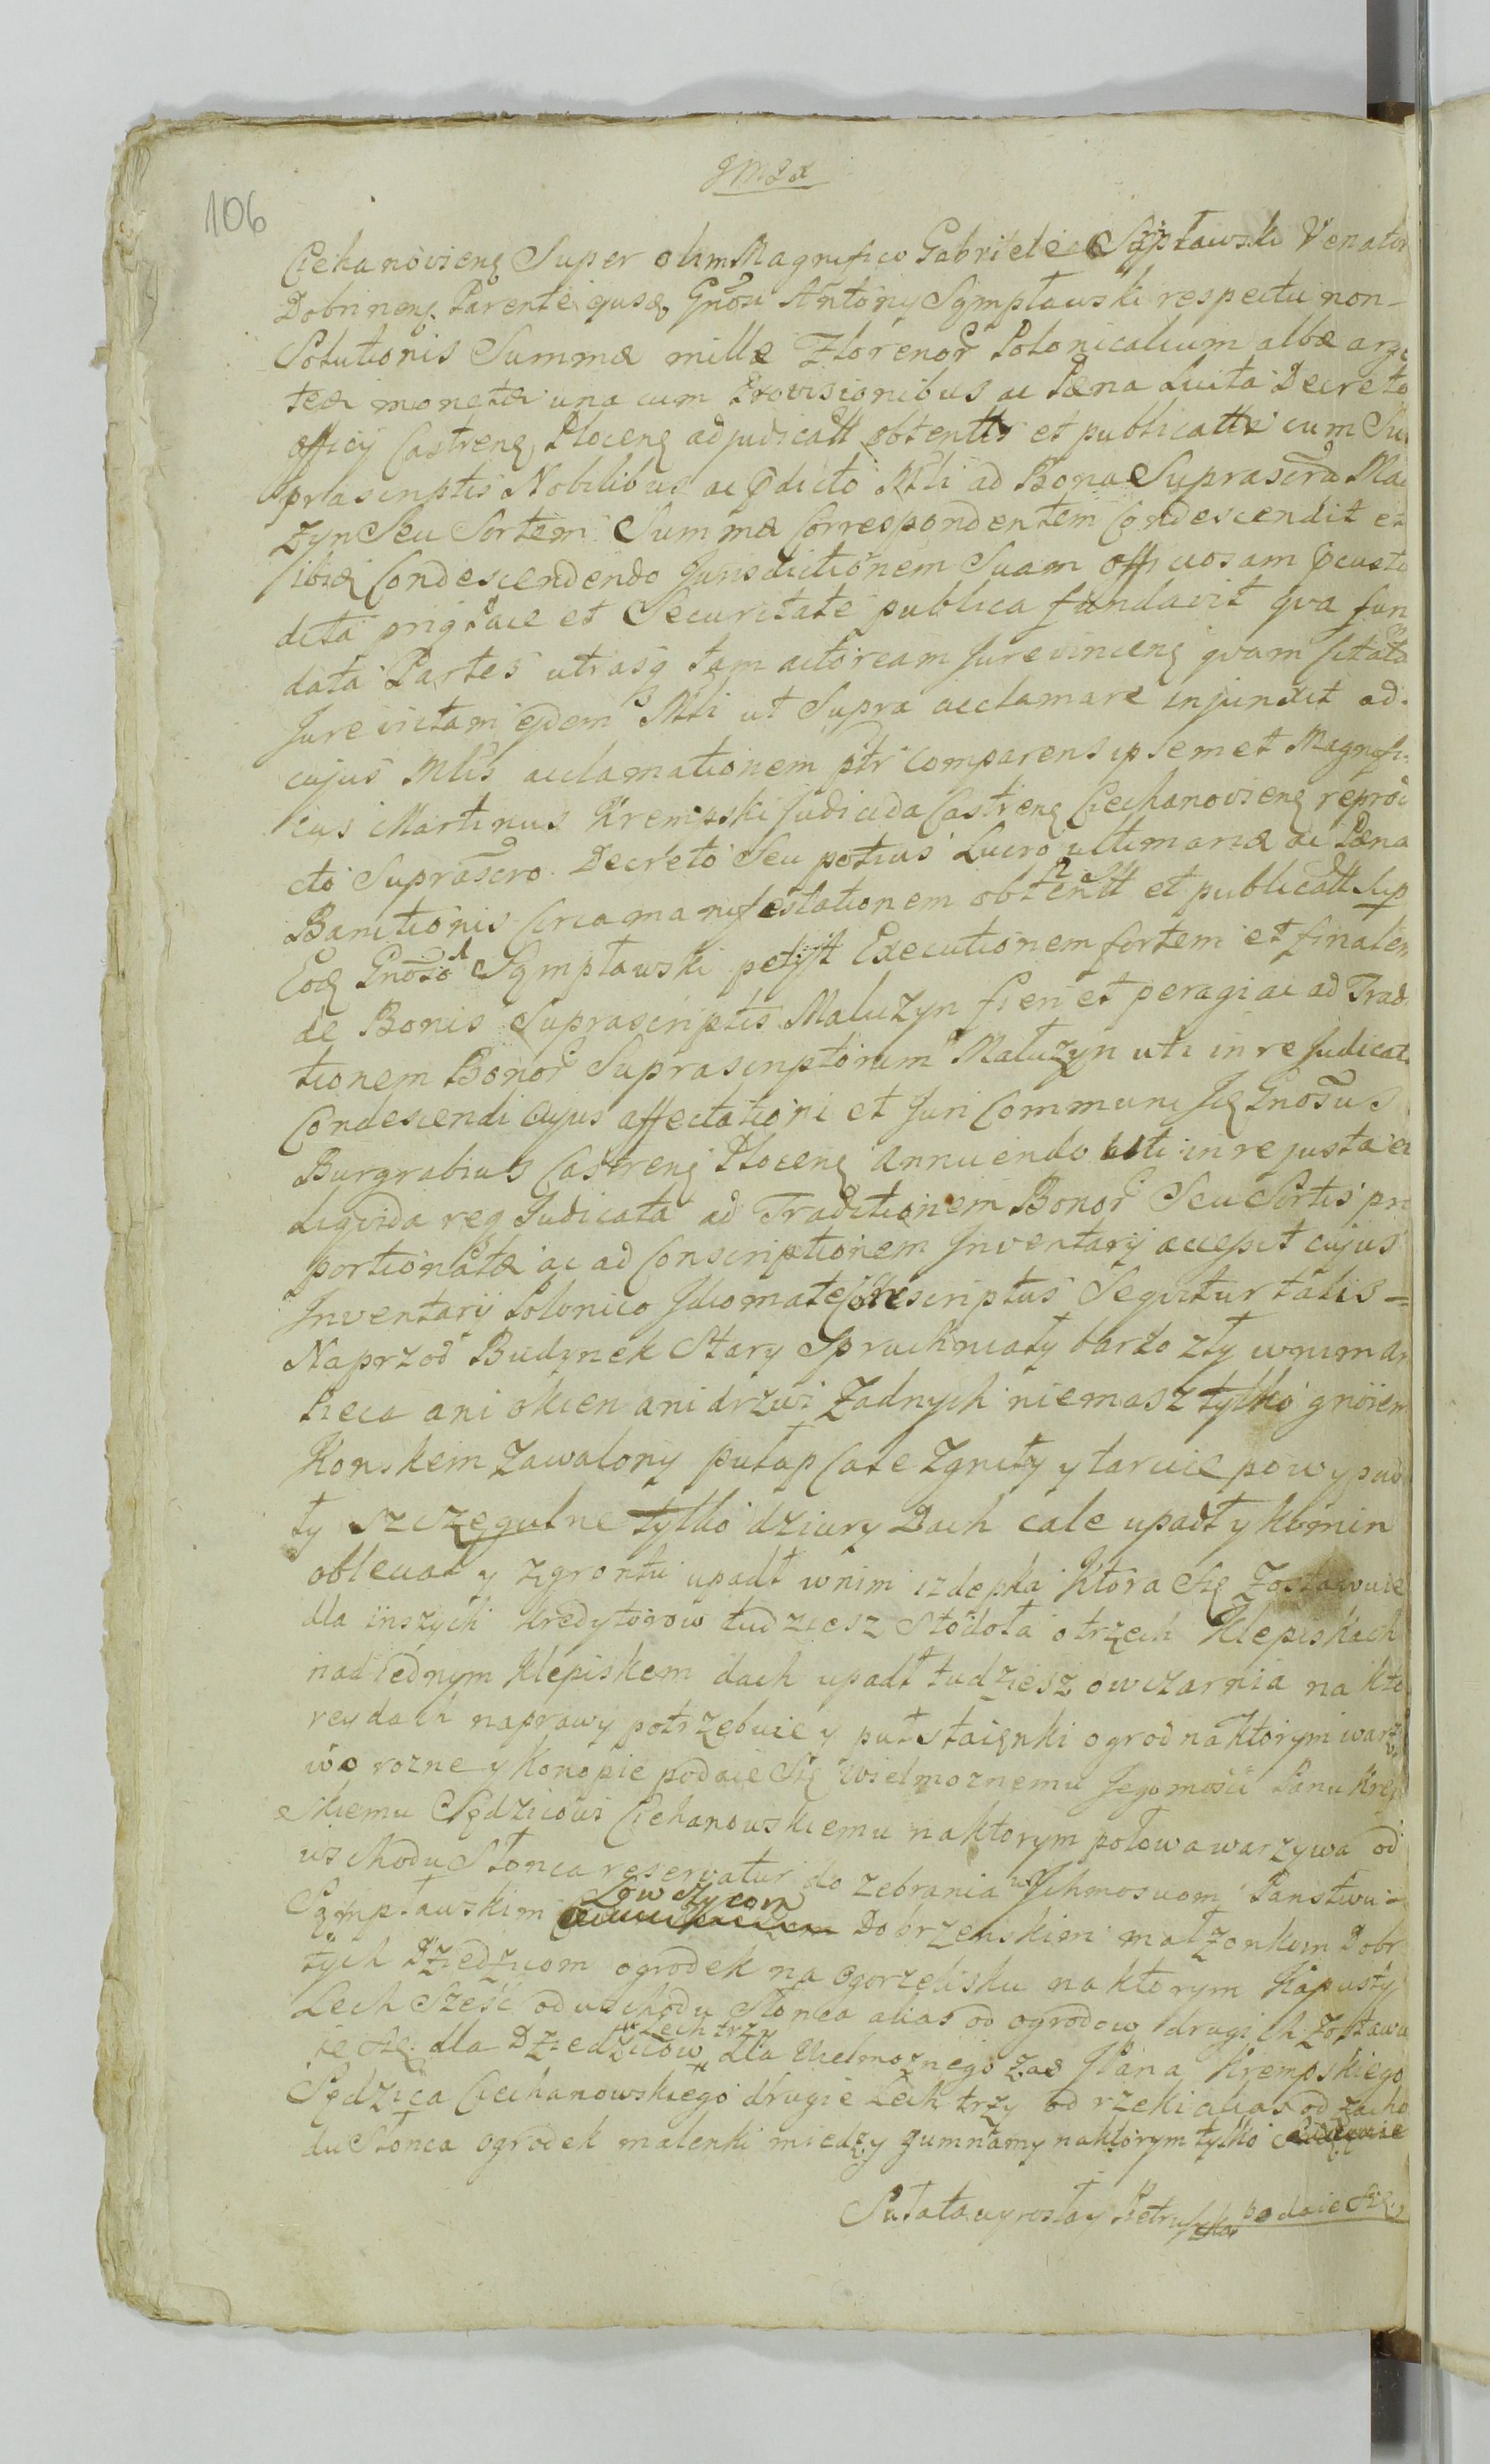 106
Ciehanovieng Super olim Magnifico Gabriele Sęmpławski Venator
Dobrineng Parente ejusq Gnosi Antony Sęmpławski respectu non-
Solutionis Summæ millæ Florenor Polonicalium albæ arge
teæ monetæ una cum Provisionibus ac Pæna Luita Decreto
officy Castreng Ploceng adjudicatt obtentis et publicattr cum Su
prascriptis Nobilibus ac Pdicto Mli ad Bona Suprascra Ma
zyn Seu Sortem Summæ Correspondentem Condescendit et
ibiq Condescendendo Jurisdictionem Suam officiosam
dita et Securitate publica fundavit qva fun
data Partes utrasq tam actoream Jurevinceng qvam
Jurevictam ejdem Mli ut Supra acclamare injunxit ad
cujus Mlis acclamationem ptr comparens ipsemet Magnifi
cus Martinus Krempski Judicida Castreng Ciechanovieng reprod
cto Suprascro Decreto Seu potius Lucro ultimariæ ac Pæna
Banitionis Circa manifestationem obtentt et publicatt Sup
Eodq Gnoso Sęmpławski petijt Executionem fortem et finalem
de Bonis Suprascriptis Maluzyn fieri et peragi ac ad Trad
tionem Bonor Suprascriptorum Maluzyn uti in re Judicata
Condescendi Cujus affectationi et Juri Communi Gnosus
Burgrabius Castreng Ploceng annuendo uti in re justa et
Liqvida req Judicata ad Traditionem Bonor Seu Sortis pro
portionatæ ac ad Conscriptionem Inventarij accepit cujus
Inventarij Polonico Idiomate Conscriptus Seqvitur talis =
Naprzod Budynek Stary Spruchniały barzo zły wnim an
Pieca ani okien ani drzwi Zadnych niemasz tylko gnoiem
Konskem Zawalony pułap Cale Zgniły y tarcie powypad
ły szczegulne tylko dziury Dach cale upadł y komin
obleciał y zgrontu upadł wnim izdepka Ktora Się Zostawuie
dla inszych kredytorow tudziesz Stodoła o trzech Klepiskach
nad iednym klepiskem dach upadł tudziesz owczarnia na kto
rey dach naprawy potrzebuie y puł staienki ogrod na ktorym warzy
wo rozne y Konopie podaie Się Wielmoznemu Jegomości Panu Kręp
skiemu Sędzicowi Ciehanowskiemu na ktorym połowa warzywa od
wschodu Słonca reservatur do zebrania Ichmosciom Panstwu
Sęmpławskim Łowczycom Dobrzenskim małzonkom Dobr
tych Dziedzicom ogrodek na Ogorzelisku na ktorym Kapusty
Lech Sześć od wschodu Słonca alias od ogrodow drugich Zostawu
ie Się dla Dziedzicow Lech trzy dla Wielmoznego zas JPana Krempskiego
Sędzica Ciechanowskiego drugie Lech trzy od rzeki alias od zacho
du Słonca ogrodek malenki między gumnamy na ktorym tylko
Sałata wyrosła y Pietruszka podaie Się